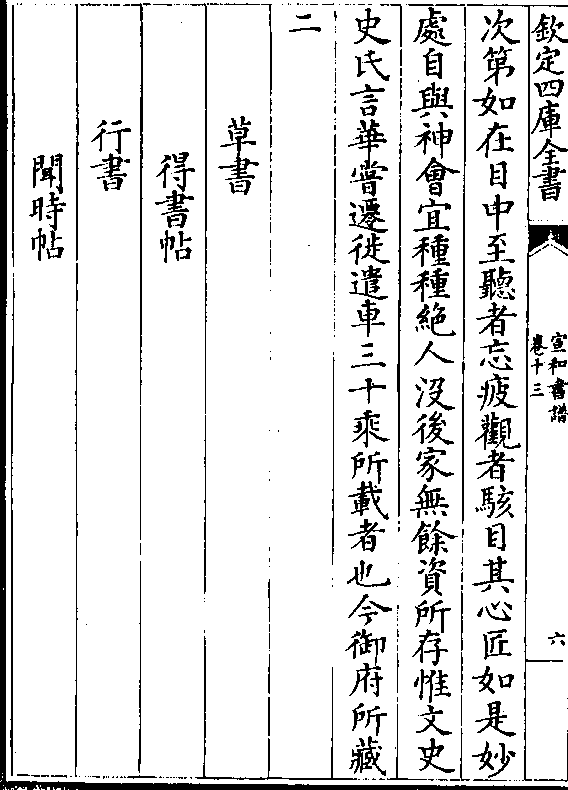 欽定四庫全書
宣和書譜
卷十三
六
次第如在目中至聽者忘疲觀者駭目其心匠如是妙
處自與神會宜種種絶人没後家無餘資所存惟文史
史氏言華嘗遷徙遣車三十乘所載者也今御府所藏
二
草書
得書帖
行書
聞時帖